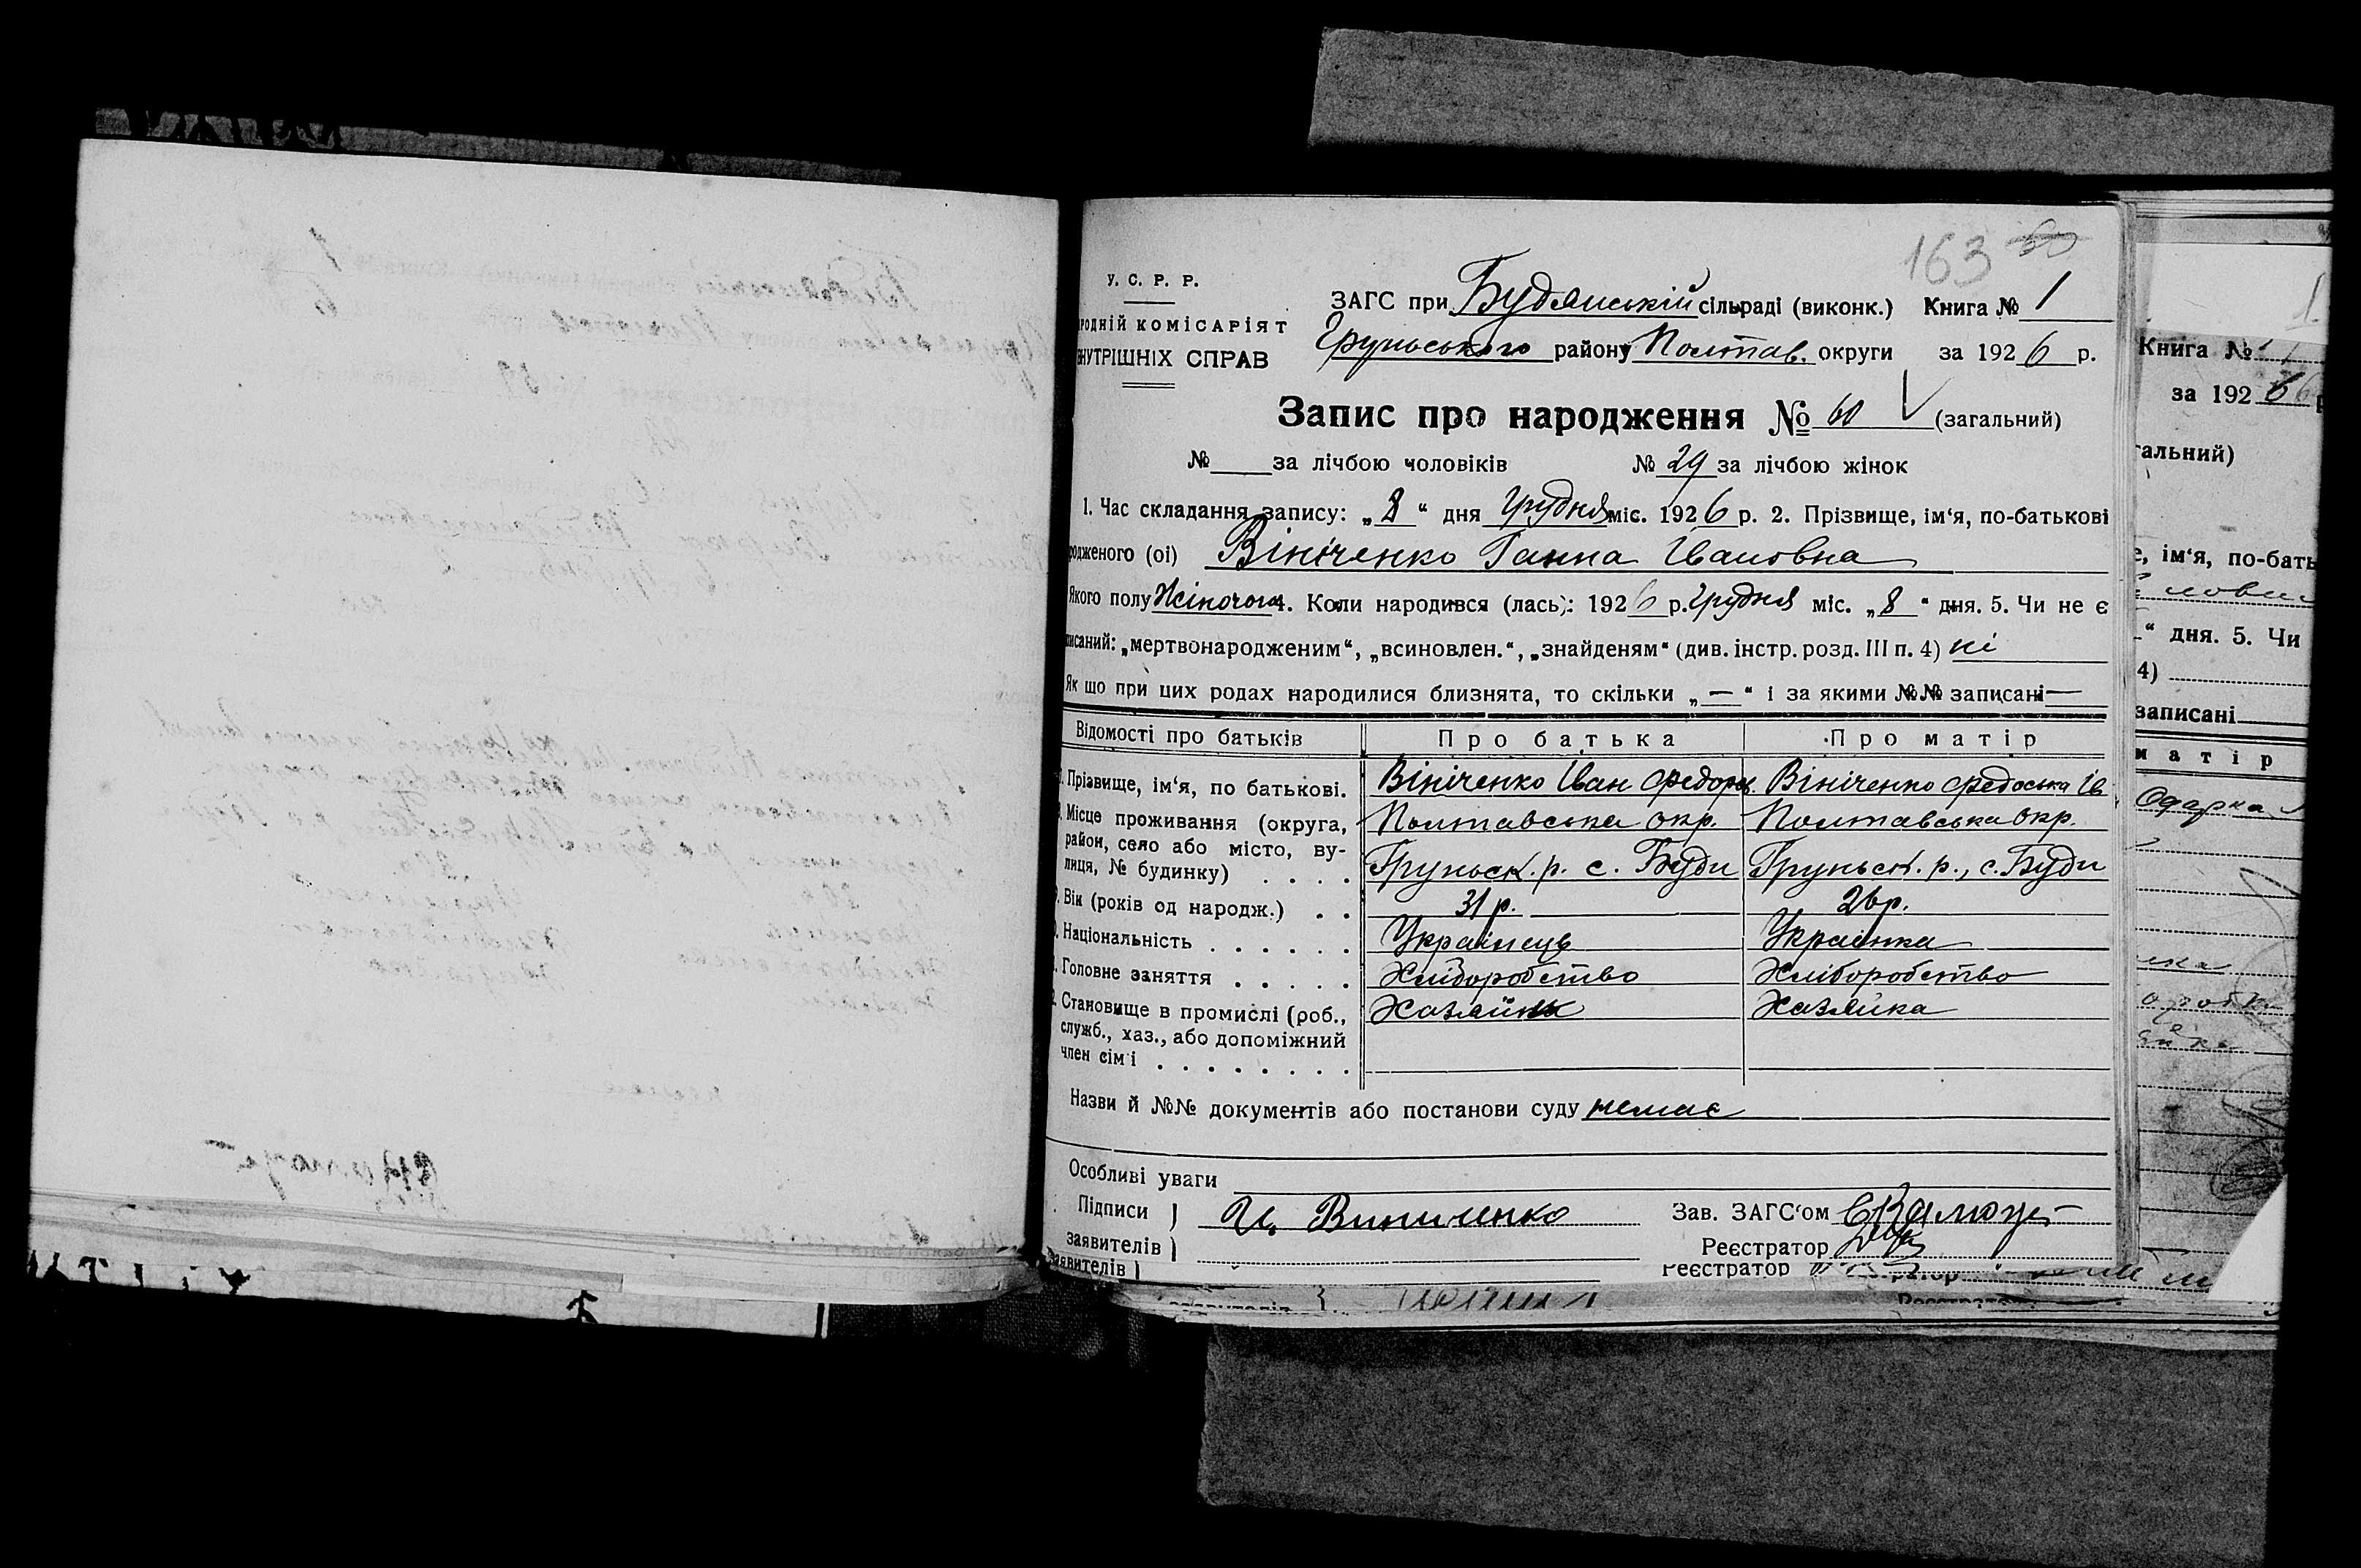 163 60
У. С. Р. Р.
ЗАГС при Будянській сільраді (виконк.) Книга № 1
РОДНІЙ КОМІСАРІЯТ
Груньського району Полтав. округи за 1926 р.
НУТРІШНІХ СПРАВ
Запис про народження № 60 (загальний)
№ за лічбою чоловіків № 29 за лічбою жінок
1. Час складання запису: „8“ дня Грудня міс. 1926 р. 2. Прізвище, ім‘я, по-батькові
родженого (ої) Вініченко Ганна Івановна
Якого полу Жіночого 4. Коли народився (лась): 1926 р. Грудня міс. „8“ дня. 5. Чи не є
писаний: „мертвонародженим“, „всиновлен.“, „знайденям“ (див. інстр. розд. III п. 4) ні
Як що при цих родах народилися близнята, то скільки „—“ і за якими №№ записані —
Відомості про батьків Про батька Про матір
Прізвище, ім‘я, по батькові. Вініченко Іван Федоров. Вініченко Федоська Ів
Місце проживання (округа, Полтавська окр. Полтавська окр.
район, село або місто, ву-
лиця, № будинку) . . . . Груньск. р. с. Буди Груньск. р., с. Буди
Вік (років од народж.) . . 31 р. 26 р.
Національність . . . . . . Українець Українка
Головне заняття . . . . . Хліборобство Хліборобство
Становище в промислі (роб., Хазяїн Хазяйка
служб., хаз., або допоміжний
член сім‘ї . . . . . . . .
Назви й №№ документів або постанови суду немає
Особливі уваги
Підписи ) И. Виниченко Зав. ЗАГС‘ом
заявителів ) Реєстратор
заявителів ) Реєстратор
Книга № 1
за 1926
гальний)
ім‘я, по-бать
“ дня. 5. Чи
4)
записані
матір
Одарка